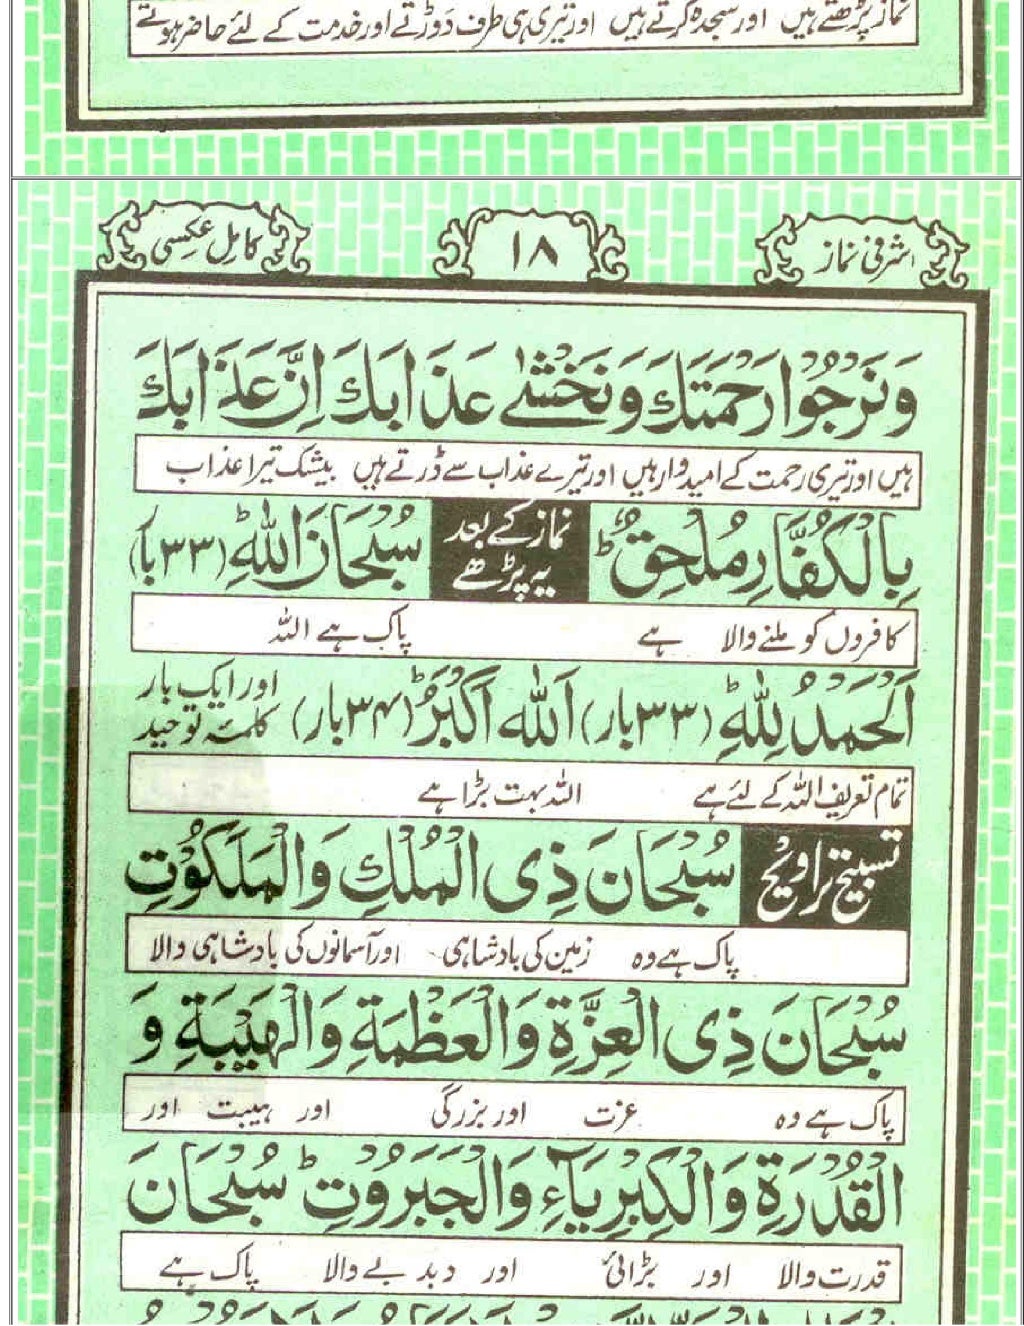 نماز پڑھتے ہیں اور سجدہ کرتے ہیں اور تیری ہی طرف دوڑتے اور خدمت کے لئے حاضر ہوتے
اشرفی نماز ۱۸ کامل عکسی
وَنَرْجُوْا رَحْمَتَكَ وَنَخْشٰى عَذَابَكَ اِنَّ عَذَابَكَ
ہیں اور تیری رحمت کے امیدوار ہیں اور تیرے عذاب سے ڈرتے ہیں بیشک تیرا عذاب
بِالْكُفَّارِ مُلْحِقٌ ؕ نماز کے بعد یہ پڑھے سُبْحَانَ اللهِ ؕ (۳۳ بار)
کافروں کو ملنے والا ہے پاک ہے اللہ
اَلْحَمْدُ لِلّٰهِ ؕ (۳۳ بار) اَللّٰهُ اَكْبَرُ ؕ (۳۴ بار) اور ایک بار کلمۂ توحید
تمام تعریف اللہ کے لئے ہے اللہ بہت بڑا ہے
تسبیح تراویح سُبْحَانَ ذِى الْمُلْكِ وَالْمَلَكُوْتِ
پاک ہے وہ زمین کی بادشاہی اور آسمانوں کی بادشاہی والا
سُبْحَانَ ذِى الْعِزَّةِ وَالْعَظْمَةِ وَالْهَيْبَةِ وَ
پاک ہے وہ عزت اور بزرگی اور ہیبت اور
الْقُدْرَةِ وَالْكِبْرِيَآءِ وَالْجَبَرُوْتِ ؕ سُبْحَانَ
قدرت والا اور بڑائی اور دبدبے والا پاک ہے